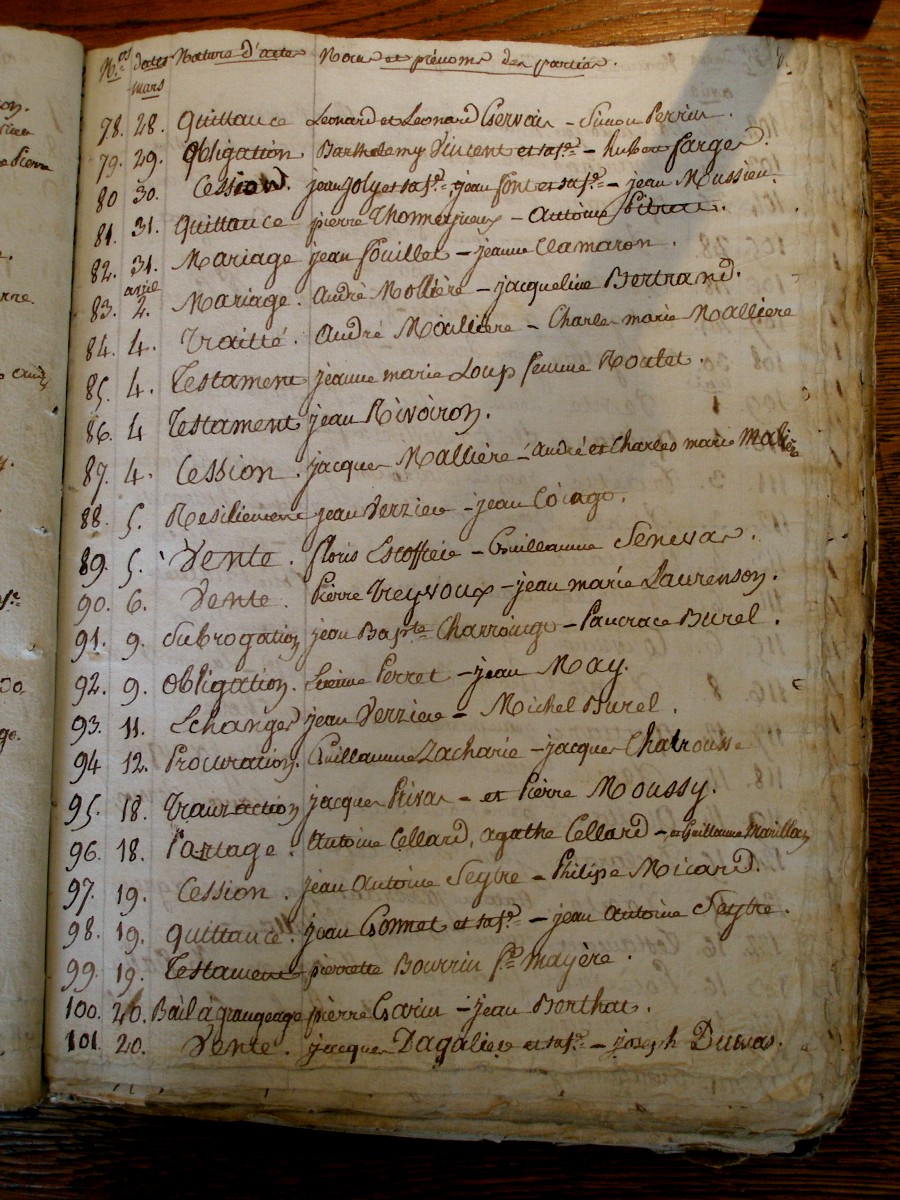 N.os dates Nature d'actes Noms et prénoms des parties.
mars
78. 28. Quittance Leonard et Leonard Gervais - Simon Perrin.
79. 29. Obligation Barthelemy Vincent et sa f.e - hubert farge
80 30. Cession. jean Joly et sa f.e, jean font et sa f.e - jean Moussieu.
81. 31. Quittance pierre Thomeyrieux - Antoine
82. 31. Mariage jean fouillet - jeanne Clamaron.
avril
83. 2. Mariage. andré Mollière - jacqueline Bertrand.
84. 4. Traitté. andré Mallière - Charles marie Mallière
85. 4. Testament jeanne marie Loup femme Boulet.
86. 4 Testament jean Rivoiron.
87. 4. Cession. jacques Mallière - André et Charles marie Malière
88. 5. Resiliement jean Verzieu - jean Coingt.
89. 5. Vente. floris Escoffier - Guillaume Senevas.
90. 6. Vente. Pierre Treyvoux - jean marie Laurenson.
91. 9. Subrogation jean Bapste Charroingt - Pancrace Burel.
92. 9. Obligation. Etienne Perret - jean May.
93. 11. Echanges jean Verzieu - Michel Burel.
94 12. Procuration. Guillaume Zacharie - jacques Chatrousse
95. 18. Transaction jacques Privas - et Pierre Moussy.
96. 18. Partage. Antoine Cellard, agathe Cellard - et Guillaume Marillas
97. 19. Cession. jean Antoine Seytre - Philipe Micard.
98. 19. Quittance. jean Gonnet et sa f.e - jean Antoine Seytre.
99. 19. Testament pierrette Bourrin f.e Mayère.
100. 20. Bail à grangeage pierre Garin - jean Berthat.
101 20. Vente. jacques Dagalier et sa f.e - joseph Duvas.